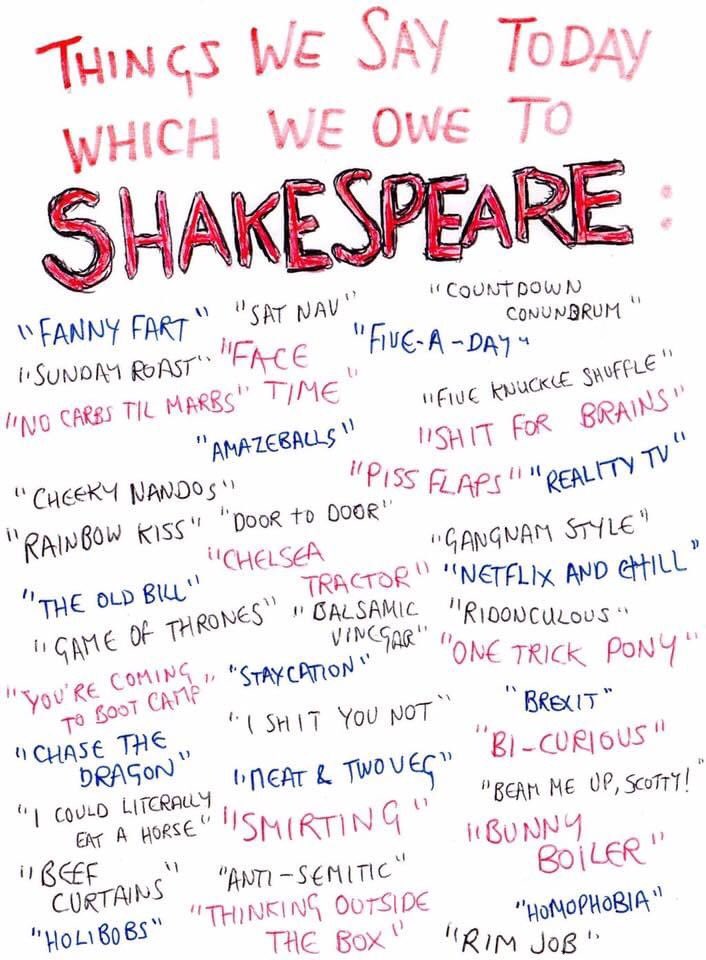 THINGS WE SAY TODAY
WHICH WE OWE TO
SHAKESPEARE:
"FANNY FART"
"SAT NAV"
"COUNTDOWN
CONUNDRUM"
"SUNDAY ROAST"
"FACE
TIME"
"FIVE-A-DAY"
"NO CARBS TIL MARBS"
"FIVE KNUCKLE SHUFFLE"
"AMAZEBALLS"
"SHIT FOR BRAINS"
"CHEEKY NANDOS"
"PISS FLAPS"
"REALITY TV"
"RAINBOW KISS"
"DOOR TO DOOR"
"GANGNAM STYLE"
"CHELSEA
TRACTOR"
"THE OLD BILL"
"NETFLIX AND CHILL"
"GAME OF THRONES"
"BALSAMIC
VINEGAR"
"RIDONCULOUS"
"YOU'RE COMING
TO BOOT CAMP"
"STAYCATION"
"ONE TRICK PONY"
"BREXIT"
"I SHIT YOU NOT"
"CHASE THE
DRAGON"
"BI-CURIOUS"
"MEAT & TWO VEG"
"BEAM ME UP, SCOTTY!"
"I COULD LITERALLY
EAT A HORSE"
"SMIRTING"
"BUNNY
BOILER"
"BEEF
CURTAINS"
"ANTI-SEMITIC"
"HOMOPHOBIA"
"HOLIBOBS"
"THINKING OUTSIDE
THE BOX"
"RIM JOB"